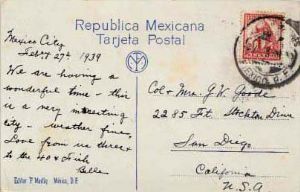 Republica Mexicana
Tarjeta Postal
Mexico City
Feby 27th 1939
We are having a
wonderful time - this
is a very interesting
city - weather fine,
Love from us three
to the
Bella
Col + Mrs. G.K. Goode
2285 Ft. Stockton Drive
San Diego
California
U.S.A
Editor México, D.F.